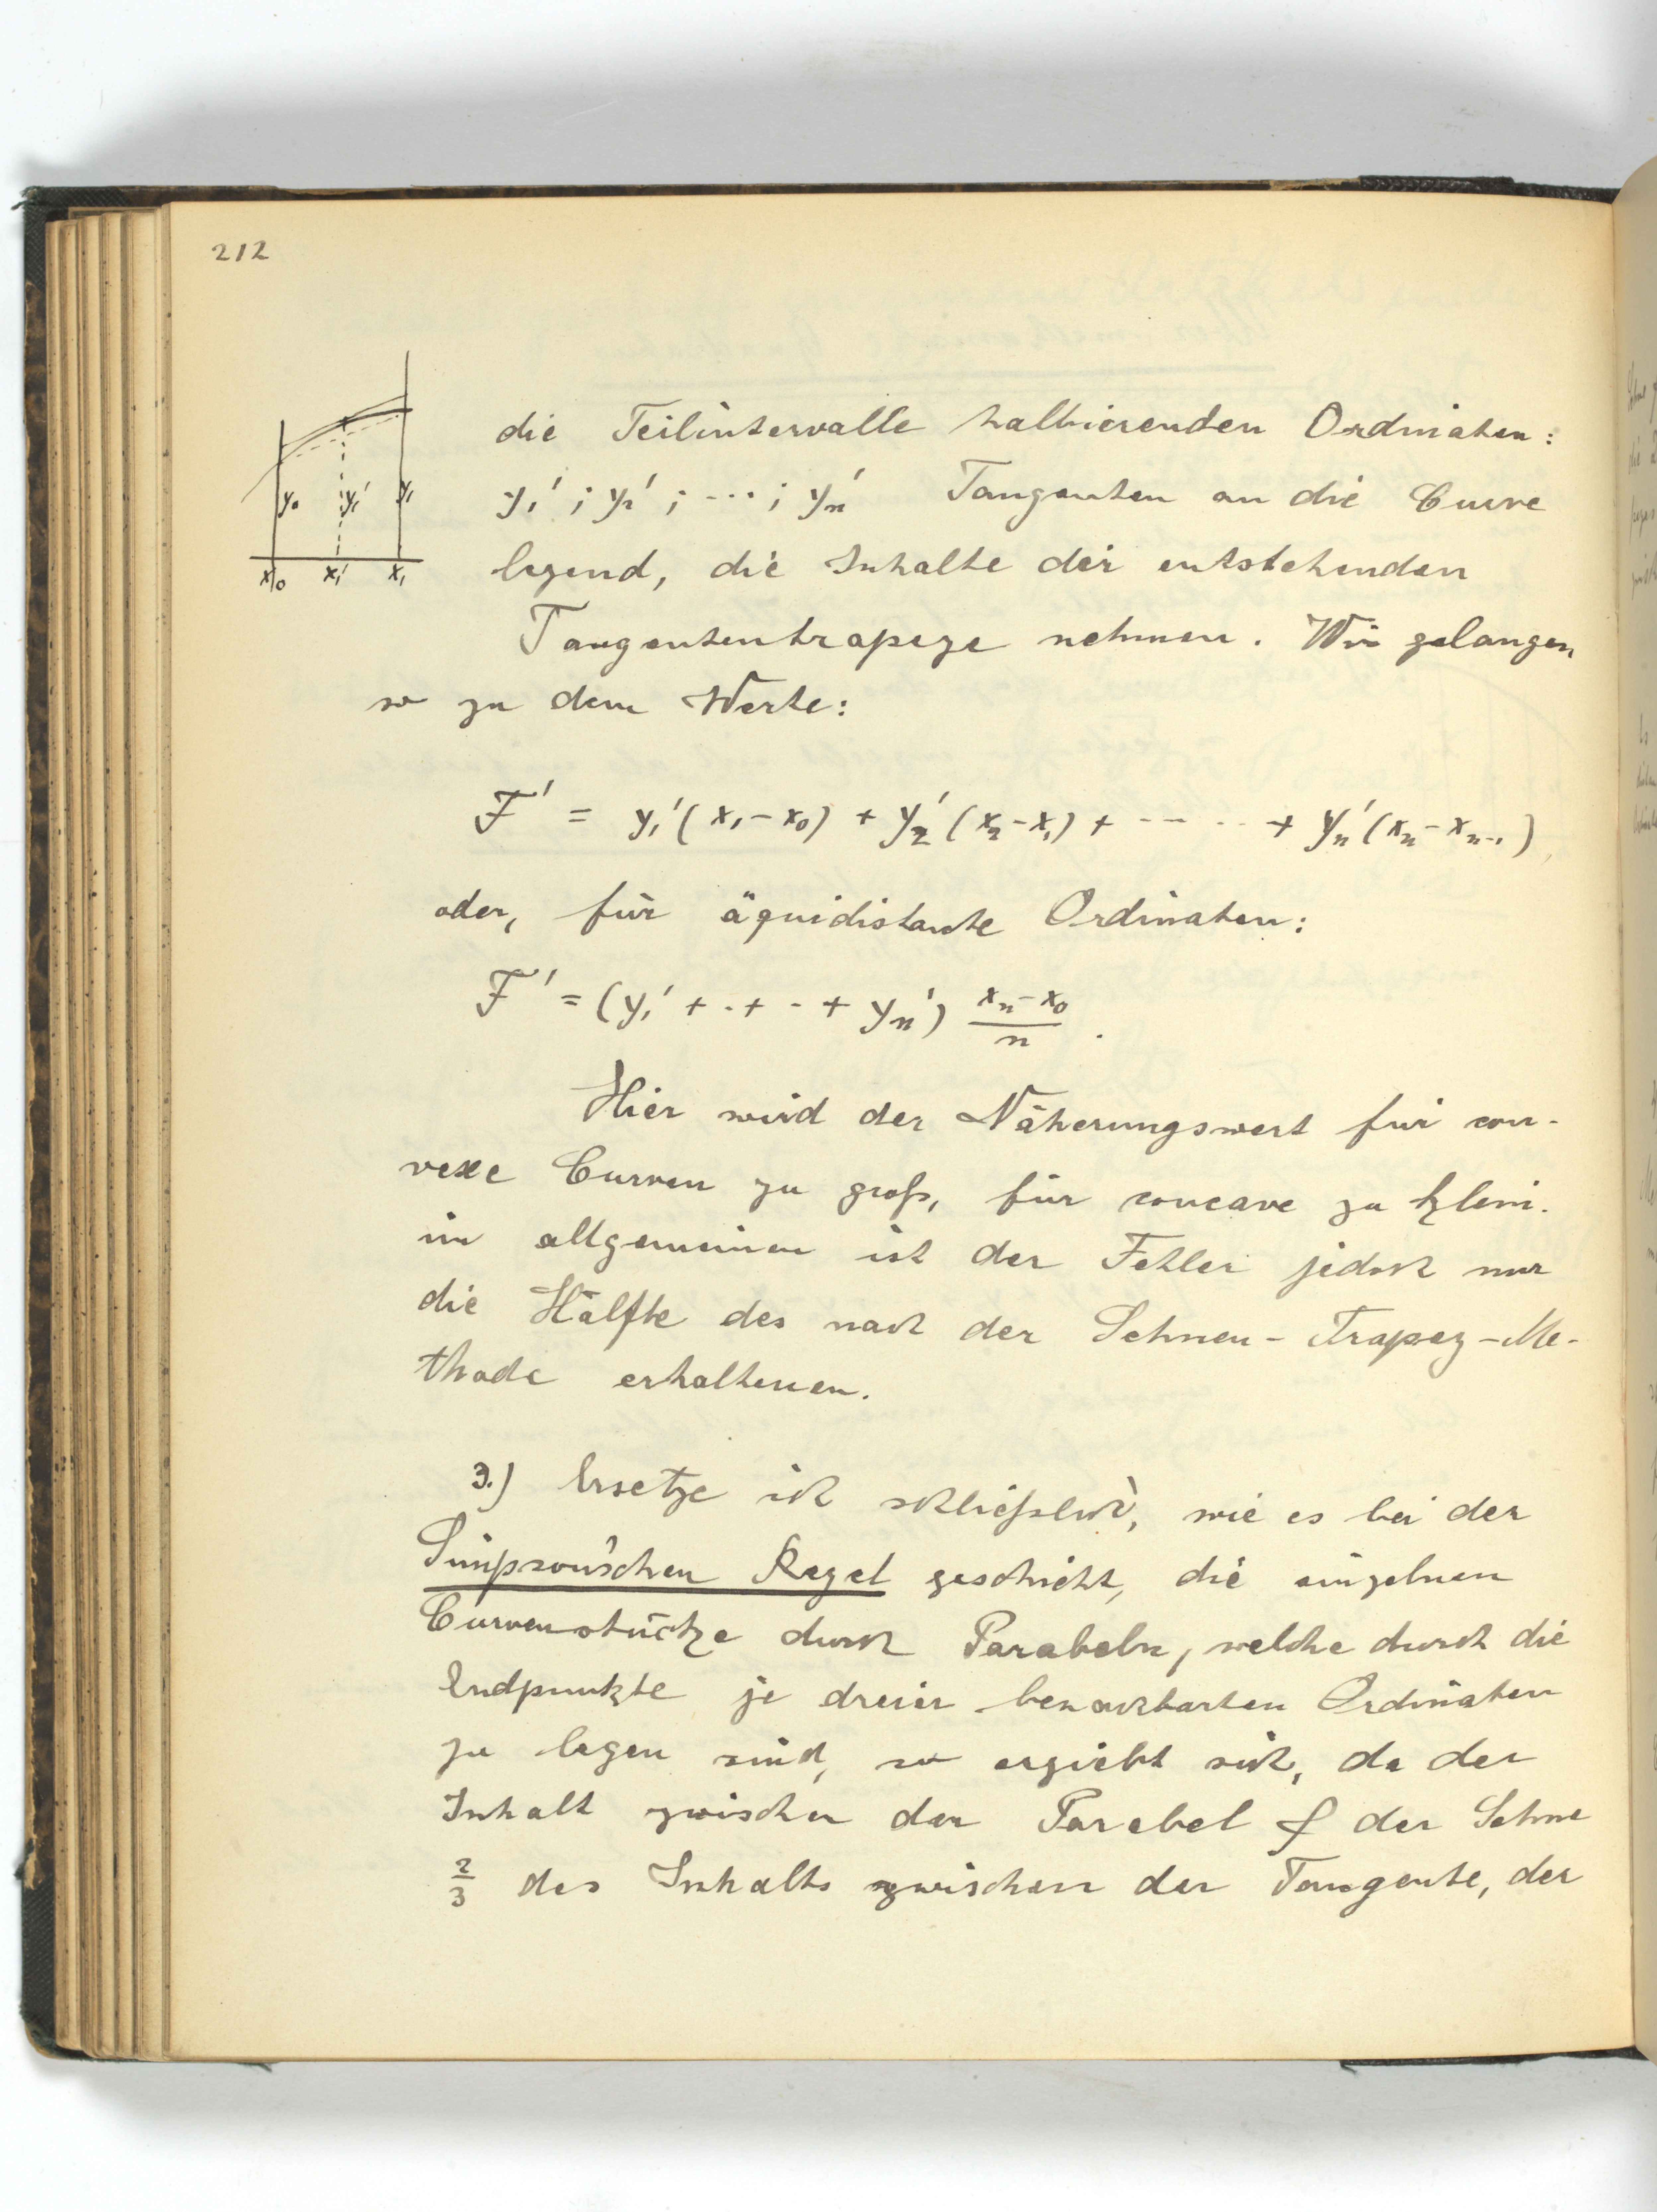 212
die Teilintervalle halbierenden Ordinaten:
y₁'; y₂'; ...; yₙ' Tangenten an die Curve
legend, die Inhalte der entstehenden
Tangententrapeze nehmen. Wir gelangen
so zu dem Werte:
y₀ y₁' y₁
x₀ x₁' x₁
F' = y₁'(x₁-x₀) + y₂'(x₂-x₁) + ---- + yₙ'(xₙ-xₙ₋₁)
oder, für äquidistante Ordinaten:
F' = (y₁' + . + . + yₙ') (xₙ-x₀)/n .
Hier wird der Näherungswert für con-
vexe Curven zu groß, für concave zu klein.
im allgemeinen ist der Fehler jedoch nur
die Hälfte des nach der Sehnen-Trapez-Me-
thode erhaltenen.
3.) Ersetze ich schließlich, wie es bei der
Simpson'schen Regel geschieht, die einzelnen
Curvenstücke durch Parabeln, welche durch die
Endpunkte je dreier benachbarten Ordinaten
zu legen sind, so ergiebt sich, da der
Inhalt zwischen der Parabel & der Sehne
2/3 des Inhalts zwischen der Tangente, der